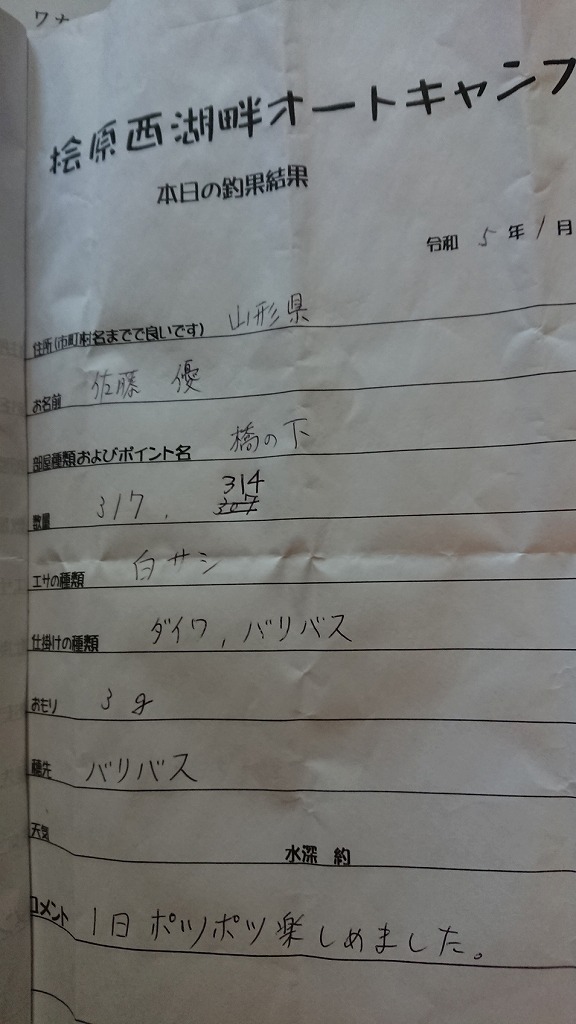 桧原西湖畔オートキャンプ
本日の釣果結果
令和 5 年 1 月
住所(市町村名までで良いです) 山形県
お名前 佐藤 優
部屋種類およびポイント名 橋の下
数量 317. 307 314
エサの種類 白サシ
仕掛けの種類 ダイワ, バリバス
おもり 3g
穂先 バリバス
天気 水深 約
コメント 1日ポツポツ楽しめました。